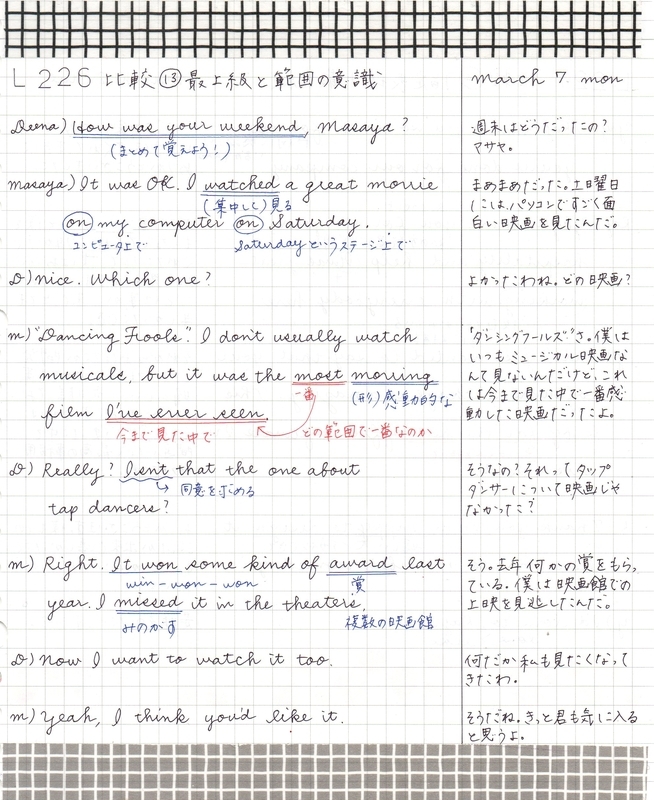 L226 比較⑬最上級と範囲の意識
march 7 mon
Deena) How was your weekend, Masaya?
(まとめて覚えよう!)
週末はどうだったの?
マサヤ。
masaya) It was OK. I watched a great movie
(集中して)見る
on my computer on Saturday.
コンピュータ上で
Saturdayというステージ上で
まあまあだった。土曜日
には、パソコンですごく面
白い映画を見たんだ。
D) nice. Which one?
よかったわね。どの映画?
m) "Dancing Fools". I don't usually watch
musicals, but it was the most moving
一番
(形)感動的な
film I've ever seen.
今まで見た中で
どの範囲で一番なのか
"ダンシングフールズ"さ。僕は
いつもミュージカル映画な
んて見ないんだけど、これ
は今まで見た中で一番感
動した映画だったよ。
D) Really? Isn't that the one about
同意を求める
tap dancers?
そうなの?それってタップ
ダンサーについて映画じゃ
なかった?
m) Right. It won some kind of award last
win-won-won
賞
year. I missed it in the theaters.
みのがす
複数の映画館
そう。去年何かの賞をもらっ
ている。僕は映画館での
上映を見逃したんだ。
D) Now I want to watch it too.
何だか私も見たくなって
きたわ。
m) Yeah, I think you'd like it.
そうだね。きっと君も気に入る
と思うよ。